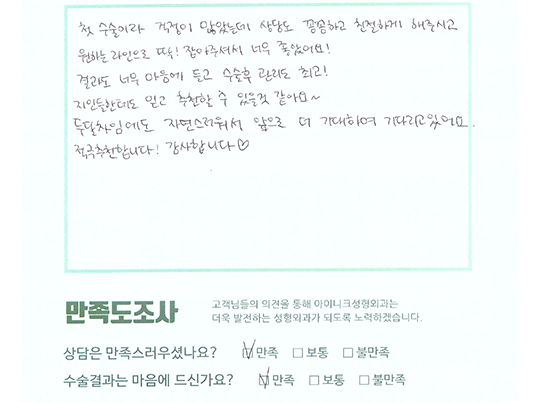 첫 수술이라 걱정이 많았는데 상담도 꼼꼼하고 친절하게 해주시고
원하는 라인으로 딱! 잡아주셔서 너무 좋았어요!
결과도 너무 마음에 들고 수술후 관리도 최고!
지인들한테도 믿고 추천할 수 있을것 같아요~
두달차임에도 자연스러워서 앞으로 더 기대하며 기다리고있어요.
적극추천합니다! 감사합니다♡
만족도조사
고객님들의 의견을 통해 아이니크성형외과는
더욱 발전하는 성형외과가 되도록 노력하겠습니다.
상담은 만족스러우셨나요? ☑만족 □보통 □불만족
수술결과는 마음에 드신가요? ☑만족 □보통 □불만족